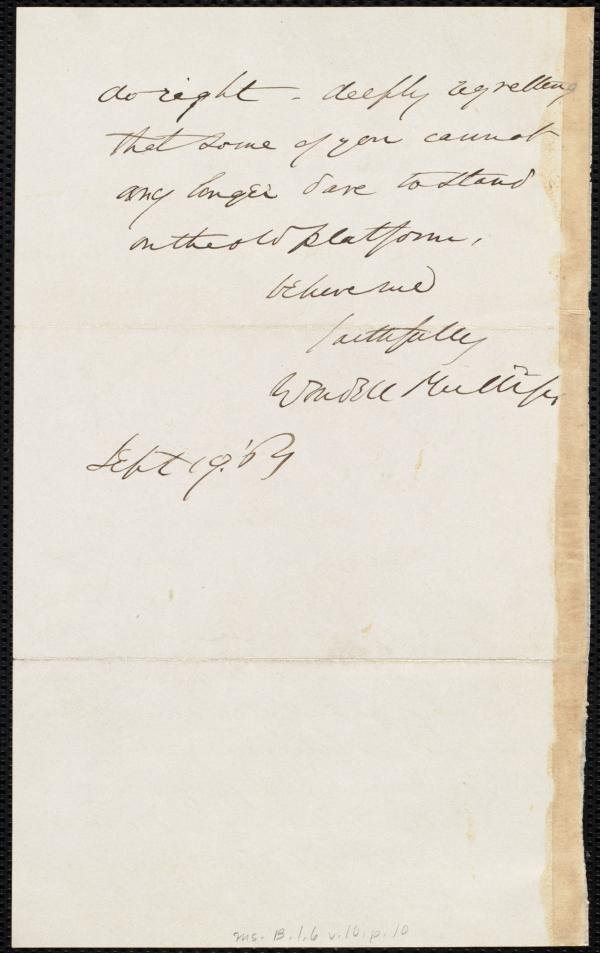 do right - deeply regretting
that some of you cannot
any longer dare to stand
on the old platform,
believe me
faithfully
Wendell Phillips
Sept 19.
ms. B.1.6 v.10, p.10